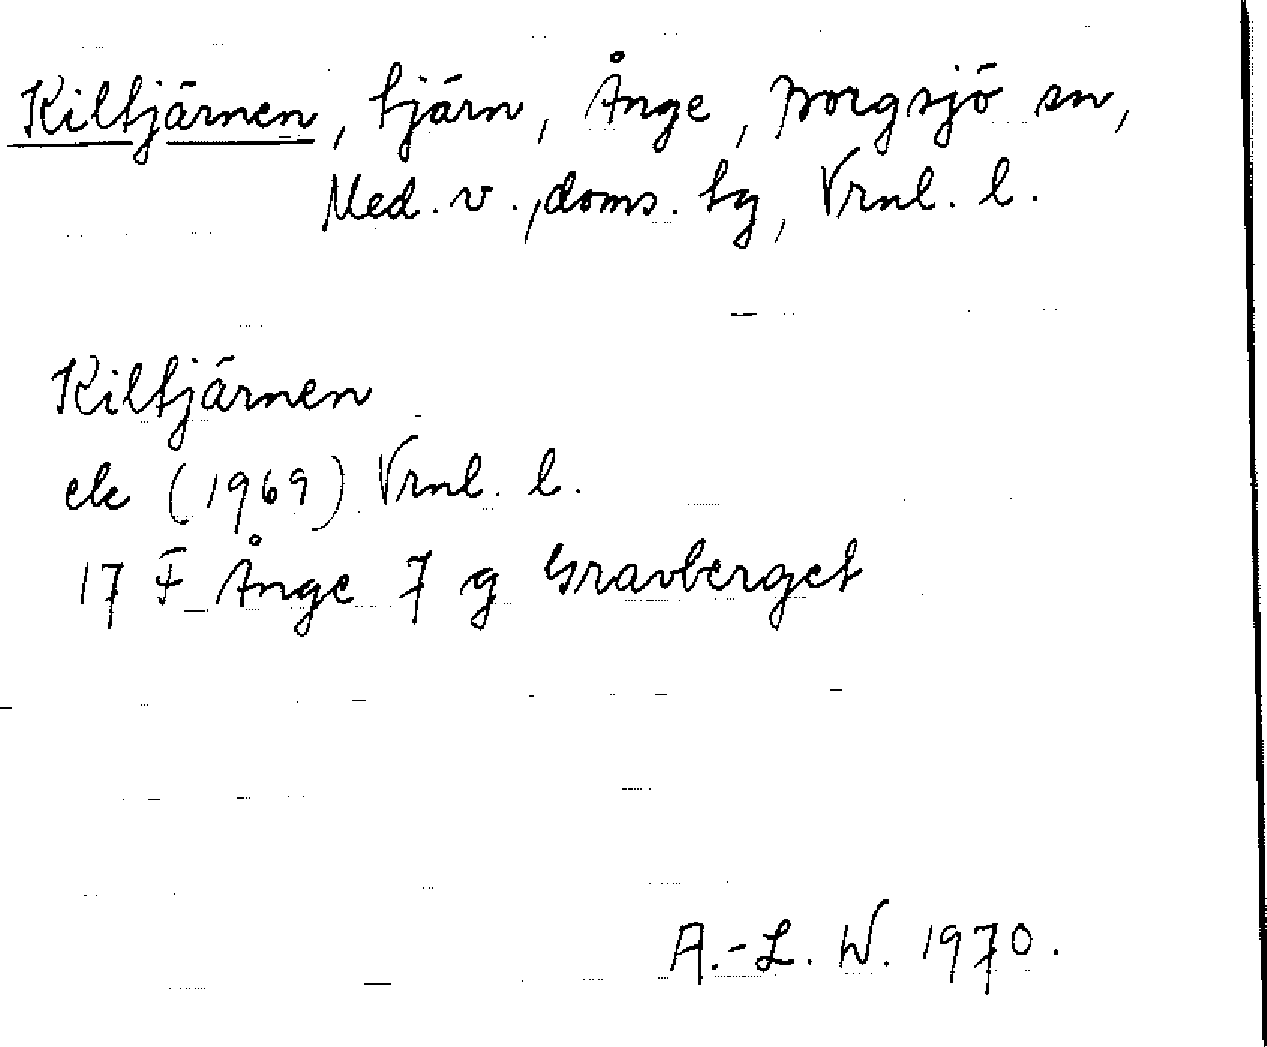 Kiltjärnen, tjärn, Ånge, Borgsjö sn,
Med. v., doms. tg, Vrnl. l.
Kiltjärnen
ek (1969) Vrnl. l.
17 F Ånge 7 g Gravberget
A.-L. W. 1970.